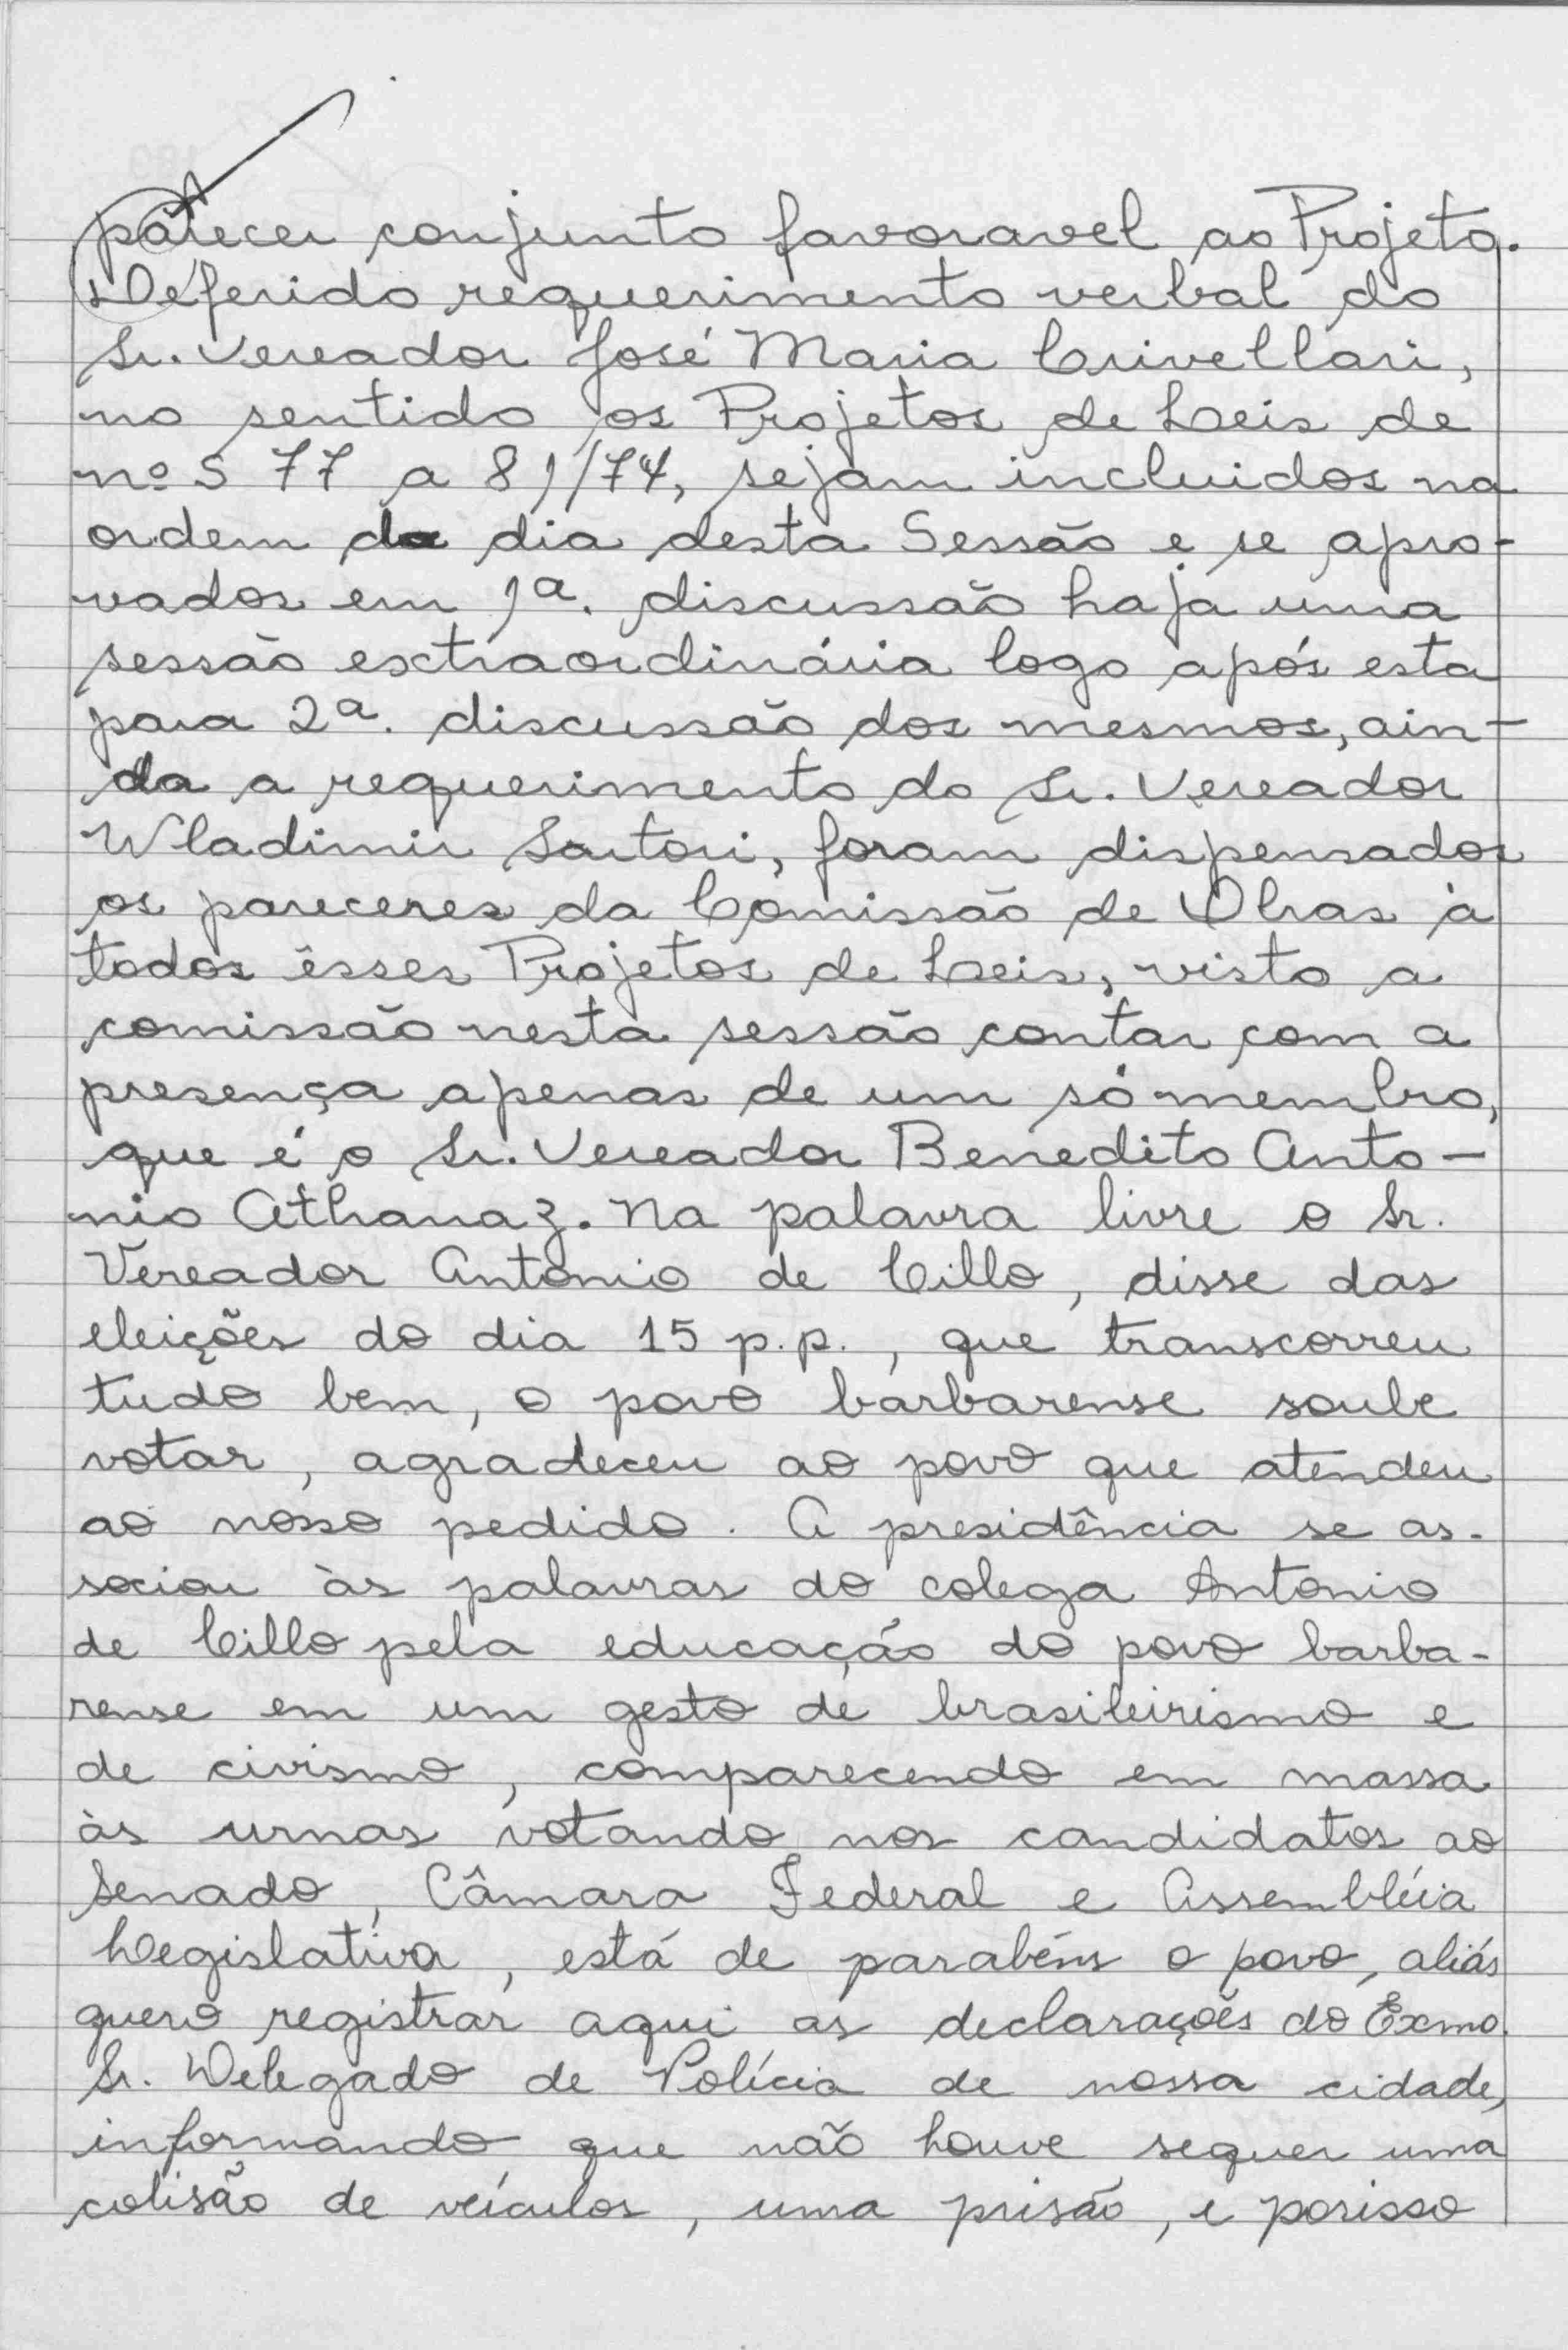 parecer conjunto favoravel ao Projeto.
Deferido requerimento verbal do
Sr. Vereador José Maria Crivellari,
no sentido os Projetos de Leis de
nºs 77 a 81/74, sejam incluidos na
ordem do dia desta Sessão e se apro-
vados em 1ª. discussão haja uma
sessão extraordinária logo após esta
para 2ª. discussão dos mesmos, ain-
da a requerimento do Sr. Vereador
Wladimir Sartori, foram dispensados
os pareceres da Comissão de Obras à
todos êsses Projetos de Leis, visto a
comissão nesta sessão contar com a
presença apenas de um só membro,
que é o Sr. Vereador Benedito Anto-
nio Athanaz. Na palavra livre o Sr.
Vereador Antonio de Cillo, disse das
eleições do dia 15 p.p., que transcorreu
tudo bem, o povo barbarense soube
votar, agradeceu ao povo que atendeu
ao nosso pedido. A presidência se as-
sociou às palavras do colega Antonio
de Cillo pela educação do povo barba-
rense em um gesto de brasileirismo e
de civismo, comparecendo em massa
às urnas votando nos candidatos ao
Senado, Câmara Federal e Assembléia
Legislativa, está de parabéns o povo, aliás
quero registrar aqui as declarações do Exmo.
Sr. Delegado de Polícia de nossa cidade,
informando que não houve sequer uma
colisão de veículos, uma prisão, e porisso